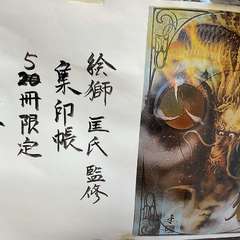 絵獅 匡氏 監修
集印帳
5冊限定